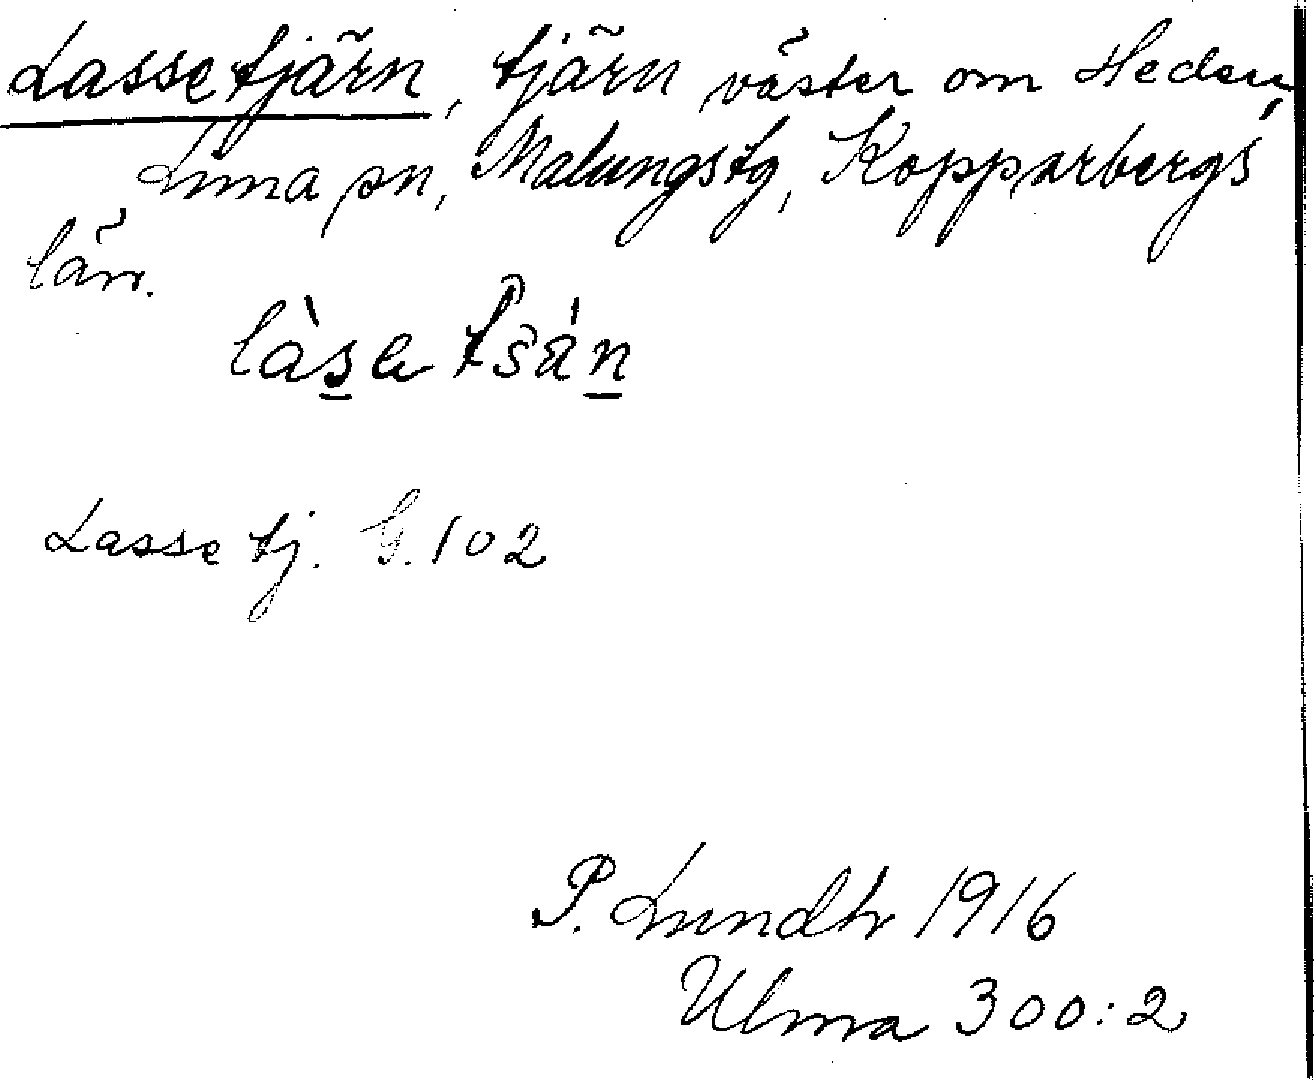 Lassetjärn, tjärn väster om Heden,
Lima sn, Malungs tg, Kopparbergs
län.
Lasse tj. G. 102
P. Lundh 1916
Ulma 300:2